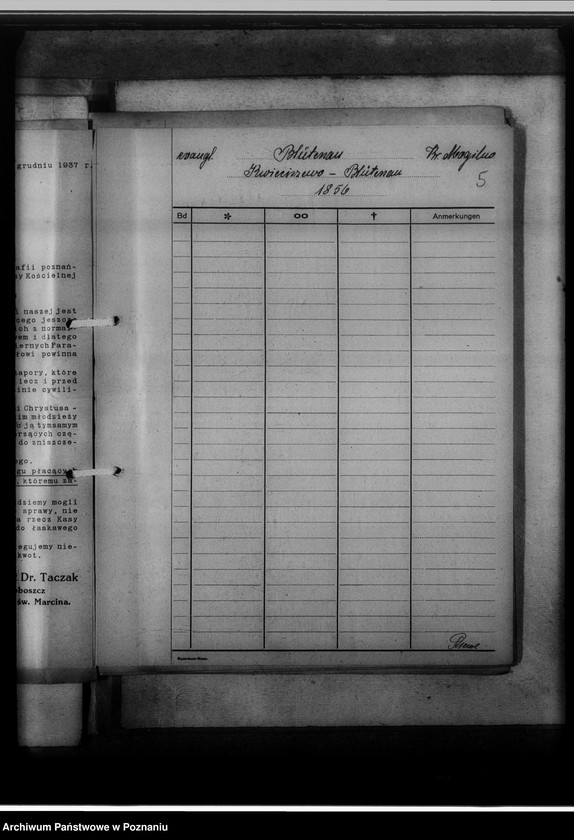 grudniu 1937 r.
afii poznań-
y Kościelnej
i naszej jest
cego jeszcze
ich z normal-
em i dlatego
iernych Para-
łowi powinna
apory, które
lecz i przed
inie cywili-
i Chrystusa -
im młodzieży
ują tymsamym
rzących czę-
do zniszcze-
ego.
gu płacący
, któremu za-
dziemy mogli
sprawy, nie
a rzecz Kasy
do łaskawego
egujemy nie-
kwot.
Dr. Taczak
oboszcz
św. Marcina.
evangl. Blütenau Kr. Mogilno
Kwieciszewo - Blütenau
5
1856
Bd * oo † Anmerkungen
Archiwum Państwowe w Poznaniu